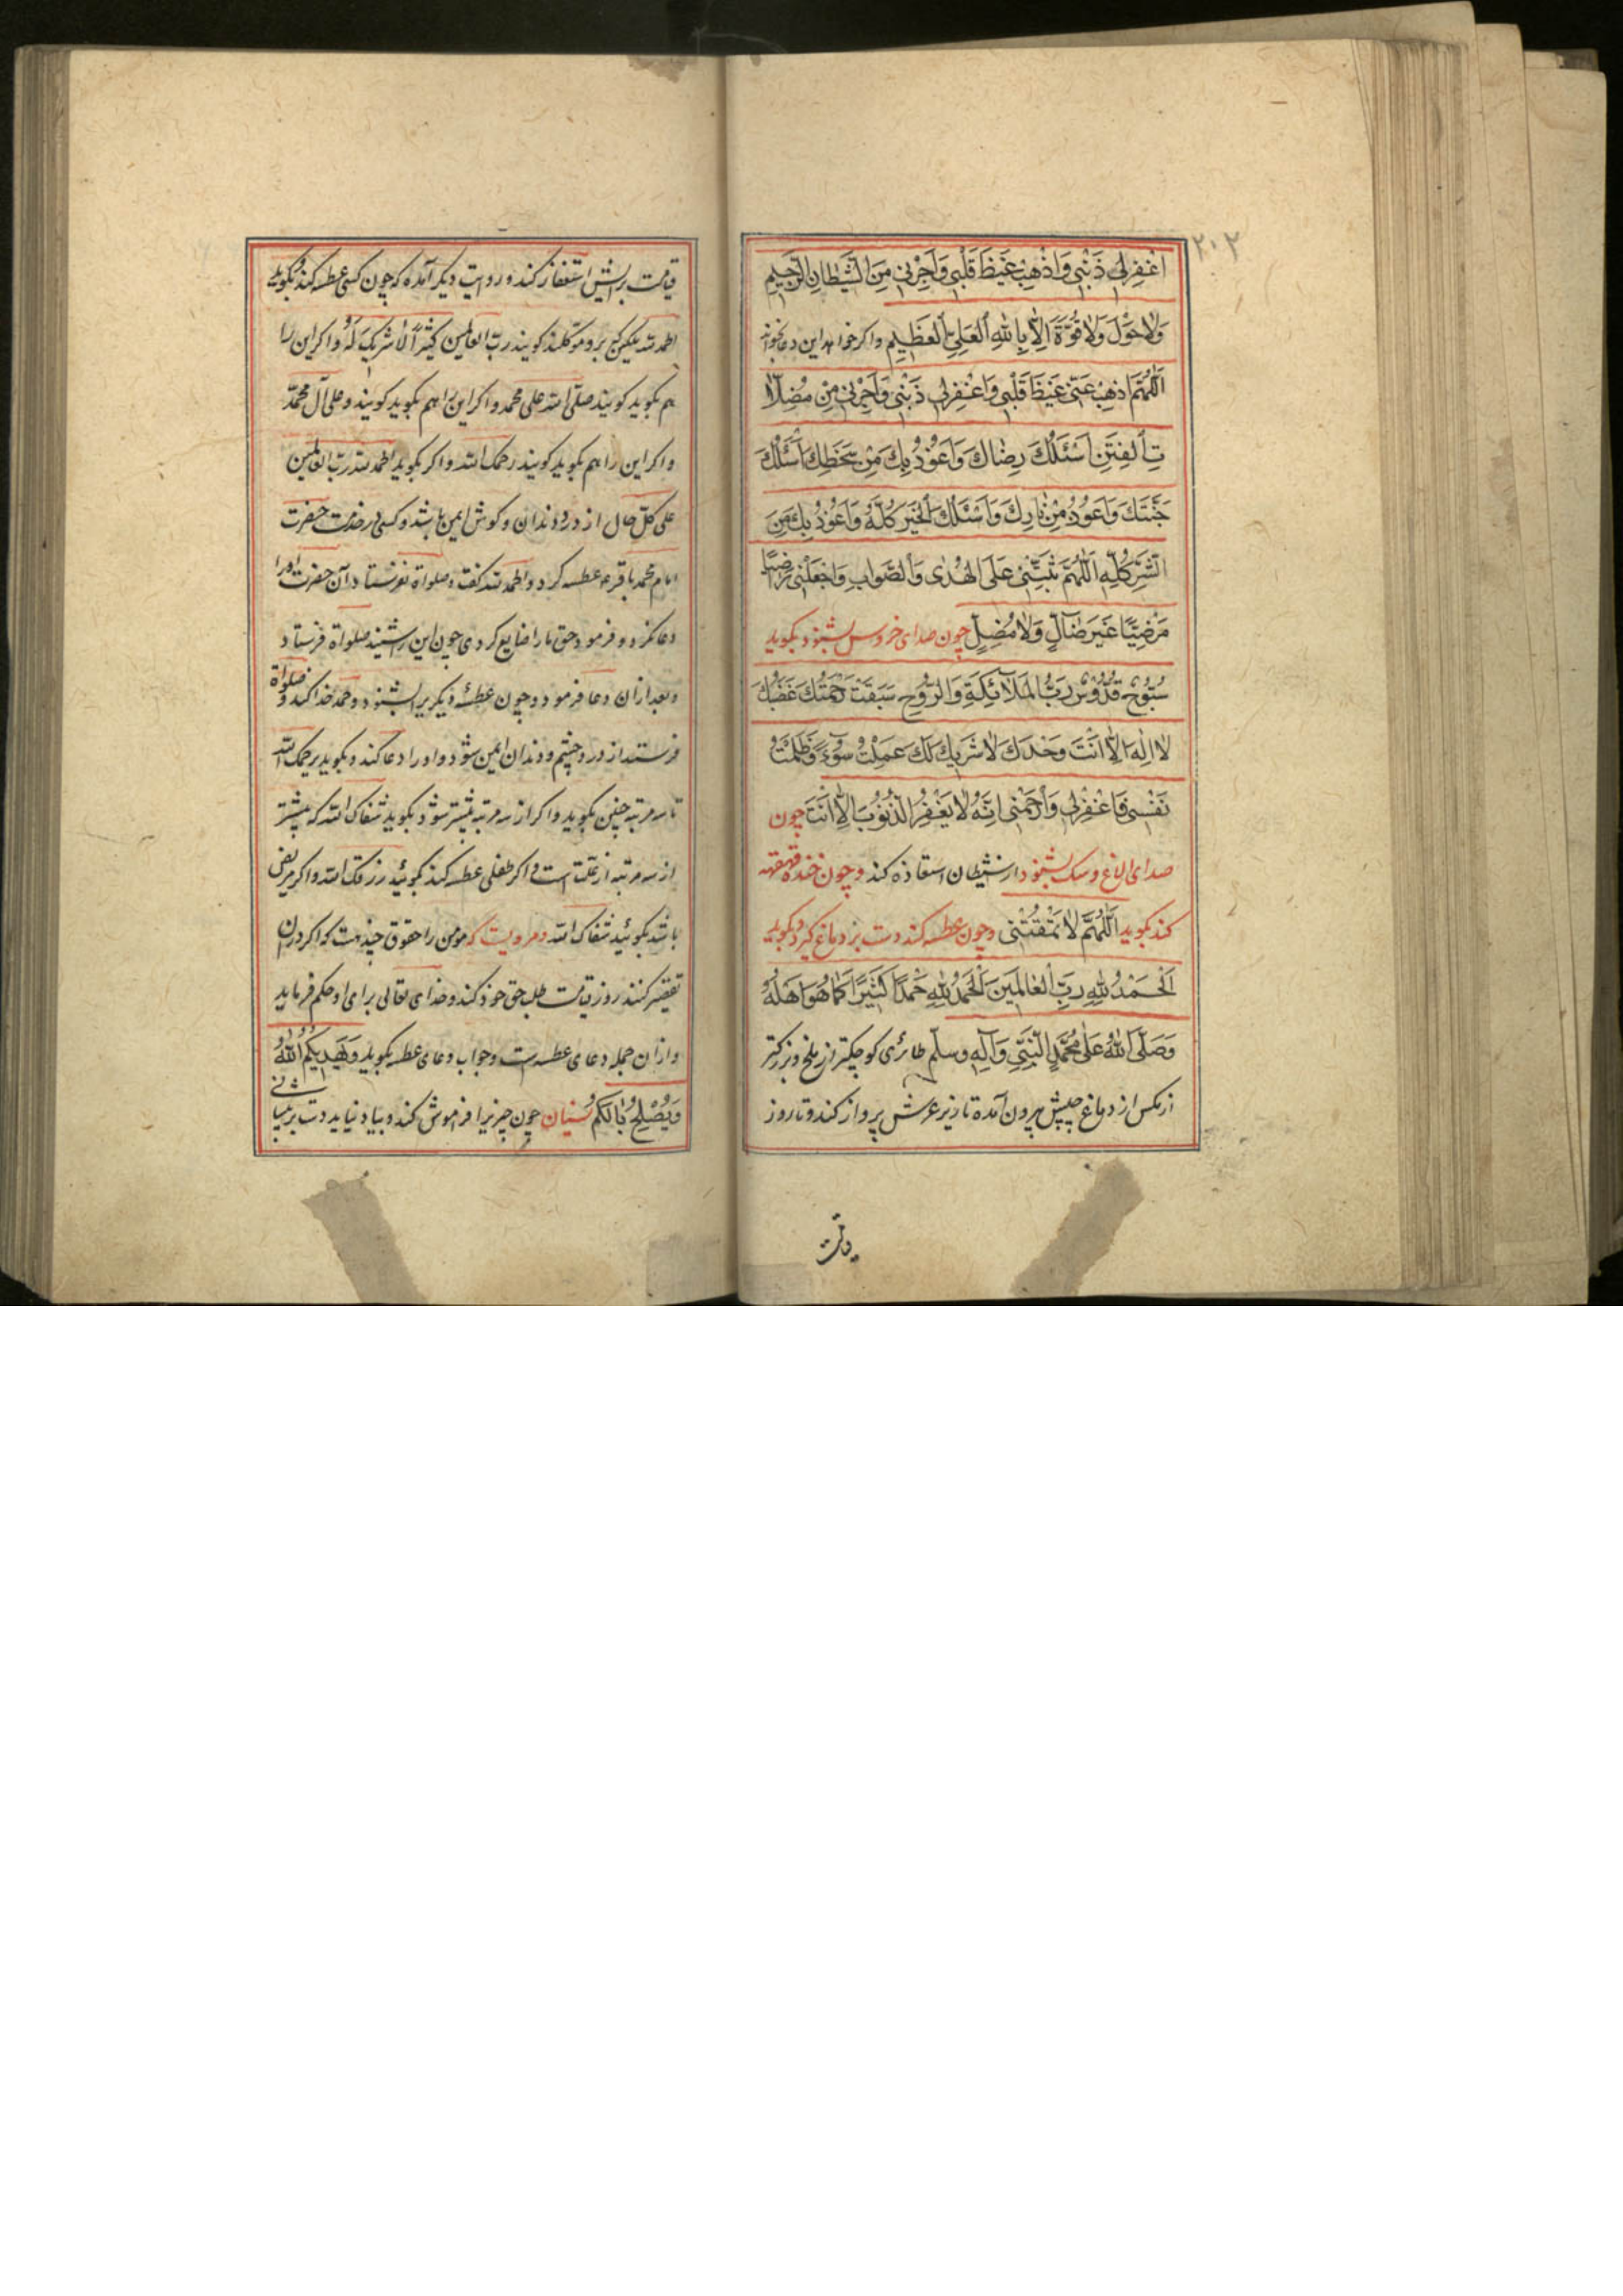 ۲۰۲
اغْفِرْلِی ذَنْبِی وَاَذْهِبْ غَیْظَ قَلْبِی وَاَجِرْنِی مِنَ الشَّیْطَانِ الرَّجِیمِ
وَلَا حَوْلَ وَلَا قُوَّةَ اِلَّا بِاللّٰهِ الْعَلِیِّ الْعَظِیمِ واکر خواهد این دعا بخواند
اَللّٰهُمَّ اذْهِبْ عَنِّی غَیْظَ قَلْبِی وَاغْفِرْلِی ذَنْبِی وَاَجِرْنِی مِنْ مُضِلَّا
تِ الْفِتَنِ اَسْئَلُكَ رِضَاكَ وَاَعُوذُ بِكَ مِنْ سَخَطِكَ اَسْئَلُكَ
جَنَّتَكَ وَاَعُوذُ مِنْ نَارِكَ وَاَسْئَلُكَ الْخَیْرَ كُلَّهُ وَاَعُوذُ بِكَ مِنَ
الشَّرِّ كُلِّهِ اَللّٰهُمَّ ثَبِّتْنِی عَلَی الْهُدٰی وَالصَّوَابِ وَاجْعَلْنِی رَضِیًّا
مَرْضِیًّا غَیْرَ ضَالٍّ وَلَا مُضِلٍّ چون صدای خروس بشنود بکوید
سُبُّوحٌ قُدُّوسٌ رَبُّ الْمَلَائِكَةِ وَالرُّوحِ سَبَقَتْ رَحْمَتُكَ غَضَبَكَ
لَا اِلٰهَ اِلَّا اَنْتَ وَحْدَكَ لَا شَرِیكَ لَكَ عَمِلْتُ سُوءً وَظَلَمْتُ
نَفْسِی فَاغْفِرْلِی وَارْحَمْنِی اِنَّهُ لَا یَغْفِرُ الذُّنُوبَ اِلَّا اَنْتَ چون
صدای الاغ وسک بشنود از شیطان استعاذه کند وچون خنده قهقهه
کند بکوید اَللّٰهُمَّ لَا تَمْقُتْنِی وچون عطسه کند دست بر دماغ کیرد وبکوید
اَلْحَمْدُ لِلّٰهِ رَبِّ الْعَالَمِینَ اَلْحَمْدُ لِلّٰهِ حَمْدًا كَثِیرًا كَمَا هُوَ اَهْلُهُ
وَصَلَّی اللّٰهُ عَلٰی مُحَمَّدٍ النَّبِیِّ وَآلِهِ وسلّم طائری کوچکتر از ملخ وبزرکتر
ازمکس از دماغ چپش بیرون آمده تا زیر عرش پرواز کند وتا روز
قیامت برایش استغفار کند وروایت دیکر آمده که چون کسی عطسه کند وبکوید
الحمدلله ملکین که بر وموکلند کویند ربّ العالمین کثیراً لا شریک لَهُ واکر این را
هم بکوید کویند صلی الله علی محمد واکر این را هم بکوید کویند وعلی آل محمّد
واکر این را هم بکوید کویند رحمک الله واکر بکوید الحمدلله ربّ العالمین
علی کلّ حال از درد دندان وکوش ایمن باشد وکسی در خدمت حضرت
امام محمد باقر ع عطسه کرد والحمدلله کفت وصلواة نفرستاد آن حضرت اورا
دعا نکرد وفرمود حق مارا ضایع کردی چون این را شنید صلواة فرستاد
وبعد ازان دعا فرمود وچون عطسهٔ دیکریرا بشنود وحمد خدا کند وصلواة
فرستد از درد چشم ودندان ایمن شود واورا دعا کند وبکوید یرحمک الله
تا سه مرتبه چنین بکوید واکر از سه مرتبه بیشتر شود بکوید شفاک الله که بیشتر
از سه مرتبه از علّت است واکر طفلی عطسه کند بکوئید رزقک الله واکر مریض
باشد بکوئید شفاک الله ومرویست که مومن را حقوق چندهست که اکر دران
تقصیر کنند روز قیامت طلب حق خود کند وخدای تعالی برای او حکم فرماید
وازان جمله دعای عطسه است وجواب دعای عطسه بکوید وَیَهْدِیكُمُ اللّٰهُ
وَیُصْلِحُ بَالَكُمْ نسیان چون چیزیرا فراموش کند وبیاد نیاید دست بر پیشا
نی